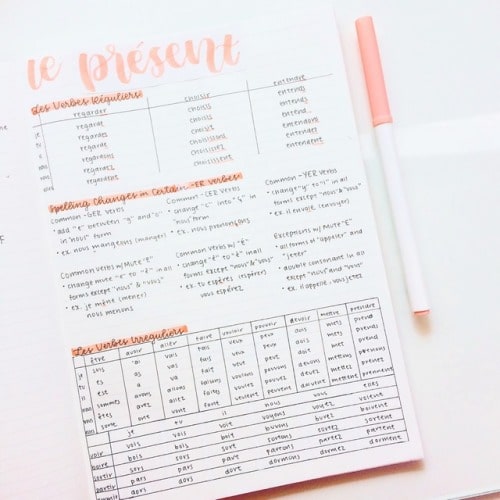 le présent
Les Verbes Réguliers
regarder choisir entendre
regarde choisis entends
regardes choisis entends
regarde choisit entend
regardons choisissons entendons
regardez choisissez entendez
regardent choisissent entendent
Spelling Changes in Certain -ER Verbes
Common -GER Verbs Common -CER Verbs Common -YER Verbs
* add "e" between "g" and "o" * change "c" into "ç" in * change "y" to "i" in all
in "nous" form "nous" form forms except "nous" & "vous"
* ex. nous mangeons (manger) * ex. nous prononçons * ex. il envoie (envoyer)
Common verbs w/ Mute "E" Common Verbs w/ "É" Exceptions w/ Mute "E"
* change mute "e" to "è" in all * change "é" to "è" in all * all forms of "appeler" and
forms except "nous" & "vous" forms except "nous" & "vous" "jeter"
* ex. je mène (mener) * ex. tu espères (espérer) * double consonant in all
nous menons vous espérez except "nous" and "vous"
* ex. il appelle, vous jetez
Les Verbes Irréguliers
être avoir aller faire vouloir pouvoir devoir mettre prendre
je suis ai vais fais veux peux dois mets prends
tu es as vas fais veux peux dois mets prends
il est a va fait veut peut doit met prend
nous sommes avons allons faisons voulons pouvons devons mettons prenons
vous êtes avez allez faites voulez pouvez devez mettez prenez
ils sont ont vont font veulent peuvent doivent mettent prennent
je tu il nous vous elles
voir vois vois voit voyons voyez voient
boire bois bois boit buvons buvez boivent
sortir sors sors sort sortons sortez sortent
partir pars pars part partons partez partent
dormir dors dors dort dormons dormez dorment